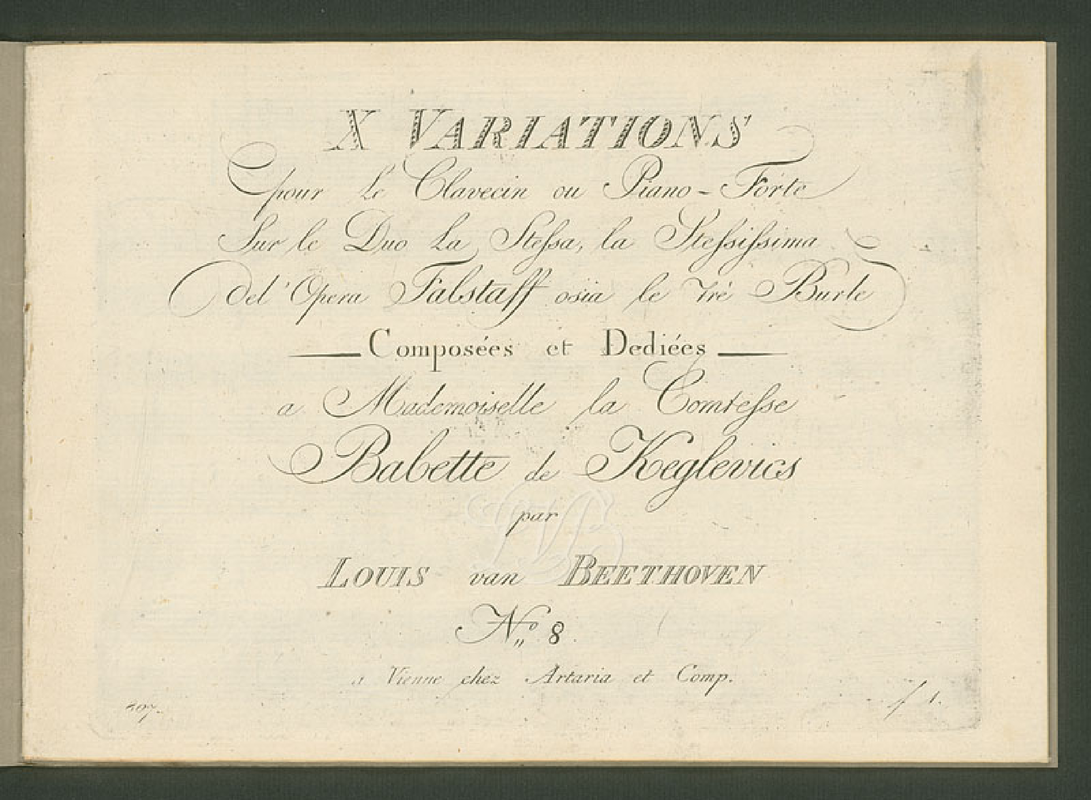 X VARIATIONS
pour Le Clavecin ou Piano-Forte
Sur le Duo La Stessa, la Stessissima
del'Opera Falstaff osia le Tré Burle
Composées et Dediées
a Mademoiselle la Comtesse
Babette de Keglevics
par
LOUIS van BEETHOVEN
No 8
a Vienne chez Artaria et Comp.
f 1.